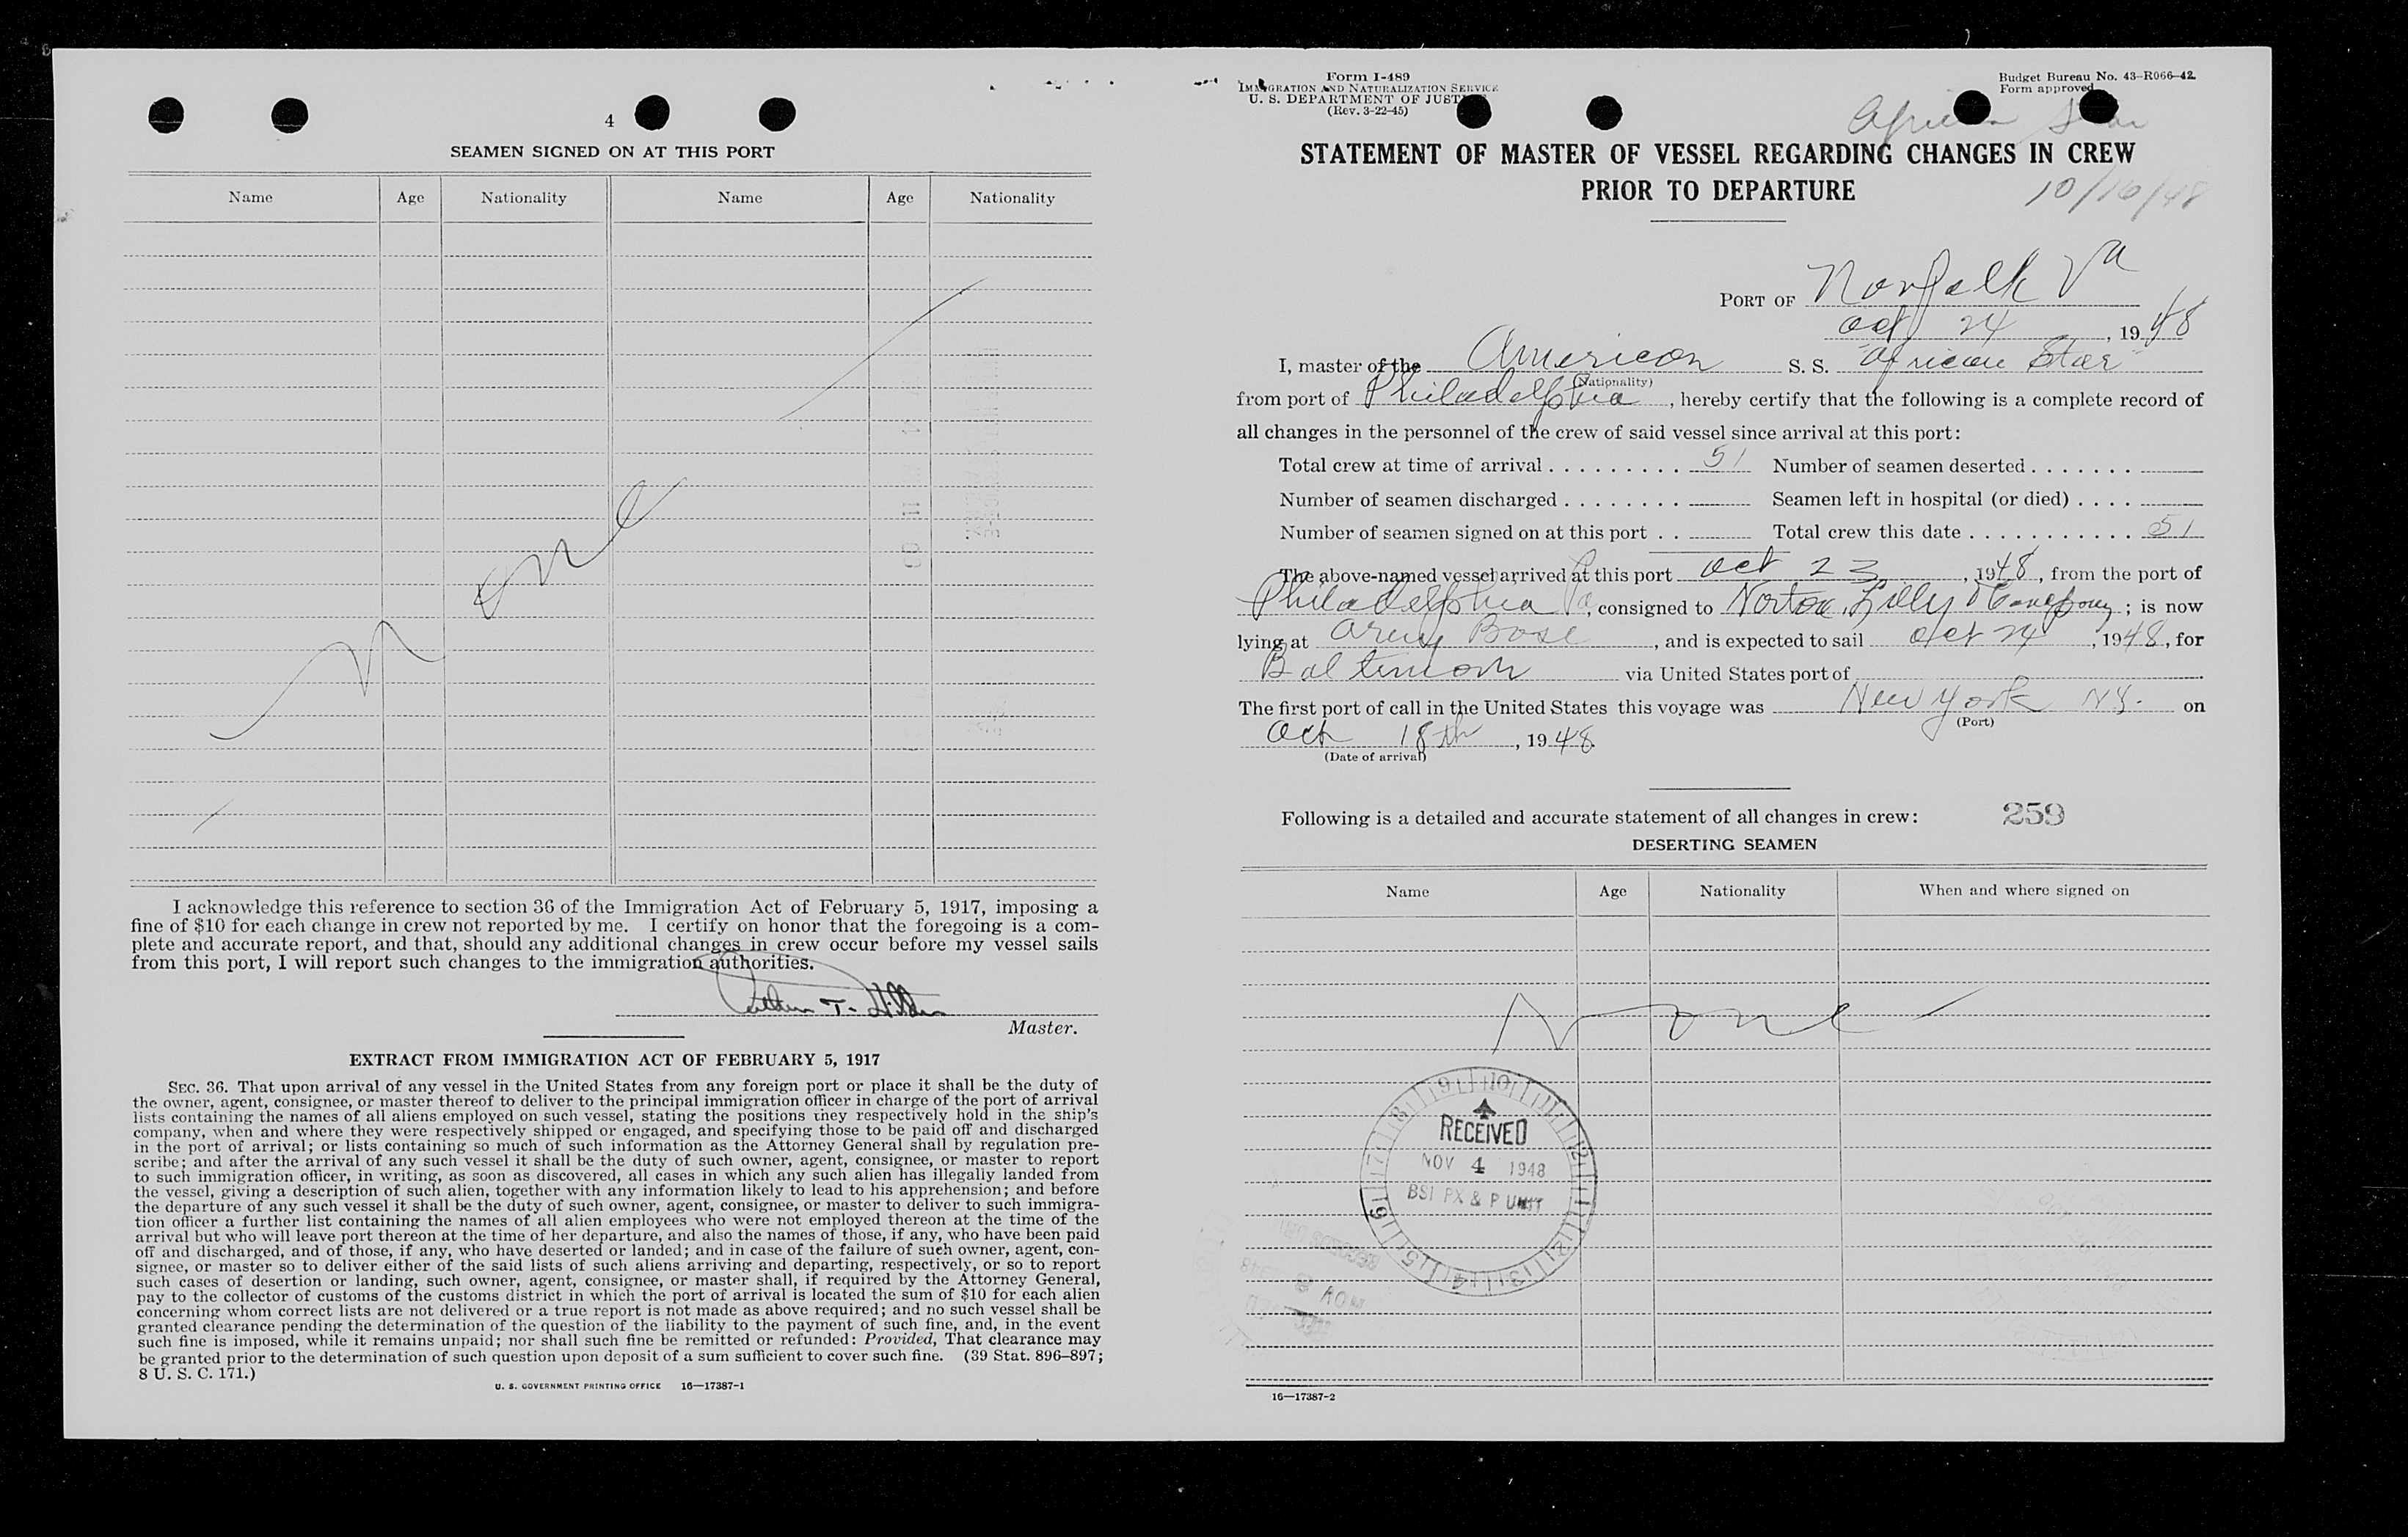 4
SEAMEN SIGNED ON AT THIS PORT
Name Age Nationality Name Age Nationality
None
I acknowledge this reference to section 36 of the Immigration Act of February 5, 1917, imposing a
fine of $10 for each change in crew not reported by me. I certify on honor that the foregoing is a com-
plete and accurate report, and that, should any additional changes in crew occur before my vessel sails
from this port, I will report such changes to the immigration authorities.
Master.
EXTRACT FROM IMMIGRATION ACT OF FEBRUARY 5, 1917
SEC. 36. That upon arrival of any vessel in the United States from any foreign port or place it shall be the duty of
the owner, agent, consignee, or master thereof to deliver to the principal immigration officer in charge of the port of arrival
lists containing the names of all aliens employed on such vessel, stating the positions they respectively hold in the ship's
company, when and where they were respectively shipped or engaged, and specifying those to be paid off and discharged
in the port of arrival; or lists containing so much of such information as the Attorney General shall by regulation pre-
scribe; and after the arrival of any such vessel it shall be the duty of such owner, agent, consignee, or master to report
to such immigration officer, in writing, as soon as discovered, all cases in which any such alien has illegally landed from
the vessel, giving a description of such alien, together with any information likely to lead to his apprehension; and before
the departure of any such vessel it shall be the duty of such owner, agent, consignee, or master to deliver to such immigra-
tion officer a further list containing the names of all alien employees who were not employed thereon at the time of the
arrival but who will leave port thereon at the time of her departure, and also the names of those, if any, who have been paid
off and discharged, and of those, if any, who have deserted or landed; and in case of the failure of such owner, agent, con-
signee, or master so to deliver either of the said lists of such aliens arriving and departing, respectively, or so to report
such cases of desertion or landing, such owner, agent, consignee, or master shall, if required by the Attorney General,
pay to the collector of customs of the customs district in which the port of arrival is located the sum of $10 for each alien
concerning whom correct lists are not delivered or a true report is not made as above required; and no such vessel shall be
granted clearance pending the determination of the question of the liability to the payment of such fine, and, in the event
such fine is imposed, while it remains unpaid; nor shall such fine be remitted or refunded: Provided, That clearance may
be granted prior to the determination of such question upon deposit of a sum sufficient to cover such fine. (39 Stat. 896–897;
8 U. S. C. 171.)
U. S. GOVERNMENT PRINTING OFFICE 16—17387-1
Form I-489
IMMIGRATION AND NATURALIZATION SERVICE
U. S. DEPARTMENT OF JUSTICE
(Rev. 3-22-45)
Budget Bureau No. 43-R066-42.
Form approved
African Star
STATEMENT OF MASTER OF VESSEL REGARDING CHANGES IN CREW
PRIOR TO DEPARTURE
10/16/48
PORT OF Norfolk Va
Oct 24, 1948
I, master of the American S. S. "African Star"
(Nationality)
from port of Philadelphia, hereby certify that the following is a complete record of
all changes in the personnel of the crew of said vessel since arrival at this port:
Total crew at time of arrival . . . . . . . . . 51 Number of seamen deserted . . . . . . .
Number of seamen discharged . . . . . . . . Seamen left in hospital (or died) . . . .
Number of seamen signed on at this port . . Total crew this date . . . . . . . . . . . 51
The above-named vessel arrived at this port Oct 23, 1948, from the port of
Philadelphia Pa, consigned to Norton, Lilly & Company; is now
lying at Army Base, and is expected to sail Oct 24, 1948, for
Baltimore via United States port of
The first port of call in the United States this voyage was New York N.Y. on
(Port)
Oct 18th, 1948.
(Date of arrival)
Following is a detailed and accurate statement of all changes in crew: 259
DESERTING SEAMEN
Name Age Nationality When and where signed on
None
RECEIVED
NOV 4 1948
BSI PX & P UNIT
16—17387-2